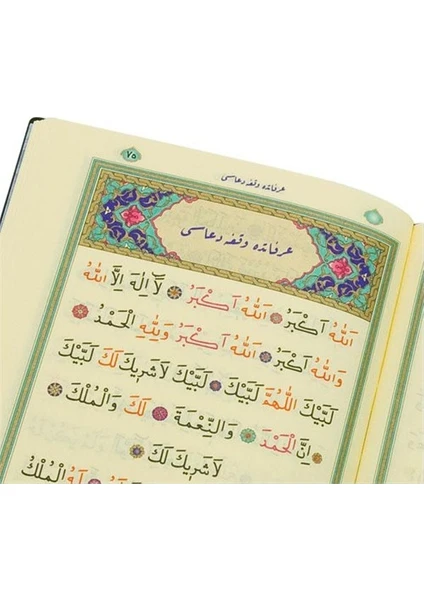 ٧٥
عرفاتده وقفه دعاسی
عرفاتده وقفه دعاسی
اَللّٰهُ اَكْبَرُ اَللّٰهُ اَكْبَرُ لَا اِلٰهَ اِلَّا اللّٰهُ
وَاللّٰهُ اَكْبَرُ اَللّٰهُ اَكْبَرُ وَلِلّٰهِ الْحَمْدُ
لَبَّيْكَ اَللّٰهُمَّ لَبَّيْكَ لَبَّيْكَ لَا شَرِيكَ لَكَ لَبَّيْكَ
اِنَّ الْحَمْدَ وَالنِّعْمَةَ لَكَ وَالْمُلْكَ
لَا شَرِيكَ لَكَ
لَهُ الْمُلْكُ